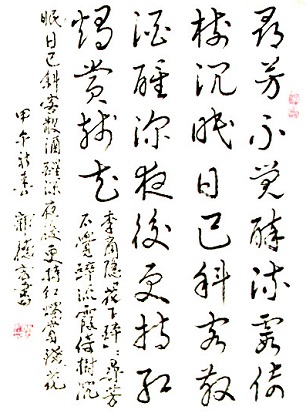 尋芳不觉醉流霞倚
树沉眠日已斜客散
酒醒深夜後更持红
烛赏残花
李商隐花下醉 尋芳
不覺醉流霞倚樹沉
眠日已斜客散酒醒深夜後更持红燭賞残花
甲午 德 書